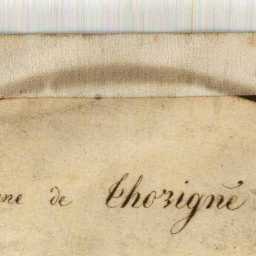 ne de Thorigné